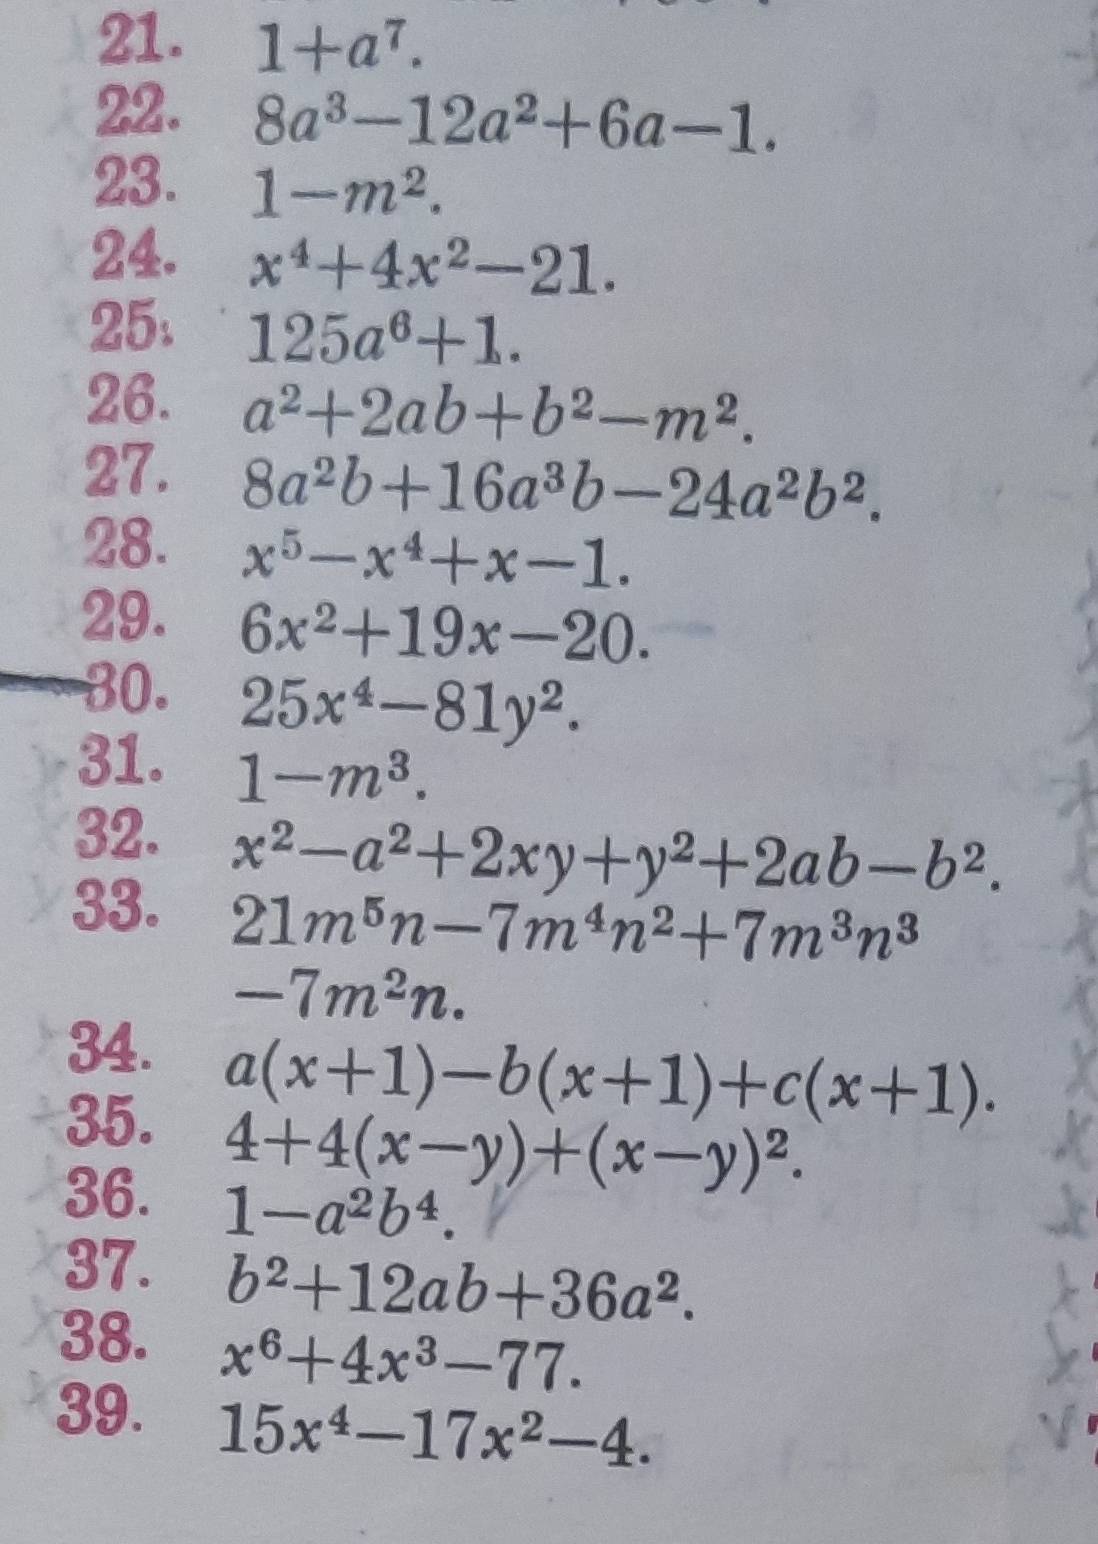 21. 1+a⁷.
22. 8a³−12a²+6a−1.
23. 1−m².
24. x⁴+4x²−21.
25. 125a⁶+1.
26. a²+2ab+b²−m².
27. 8a²b+16a³b−24a²b².
28. x⁵−x⁴+x−1.
29. 6x²+19x−20.
30. 25x⁴−81y².
31. 1−m³.
32. x²−a²+2xy+y²+2ab−b².
33. 21m⁵n−7m⁴n²+7m³n³
−7m²n.
34. a(x+1)−b(x+1)+c(x+1).
35. 4+4(x−y)+(x−y)².
36. 1−a²b⁴.
37. b²+12ab+36a².
38. x⁶+4x³−77.
39. 15x⁴−17x²−4.